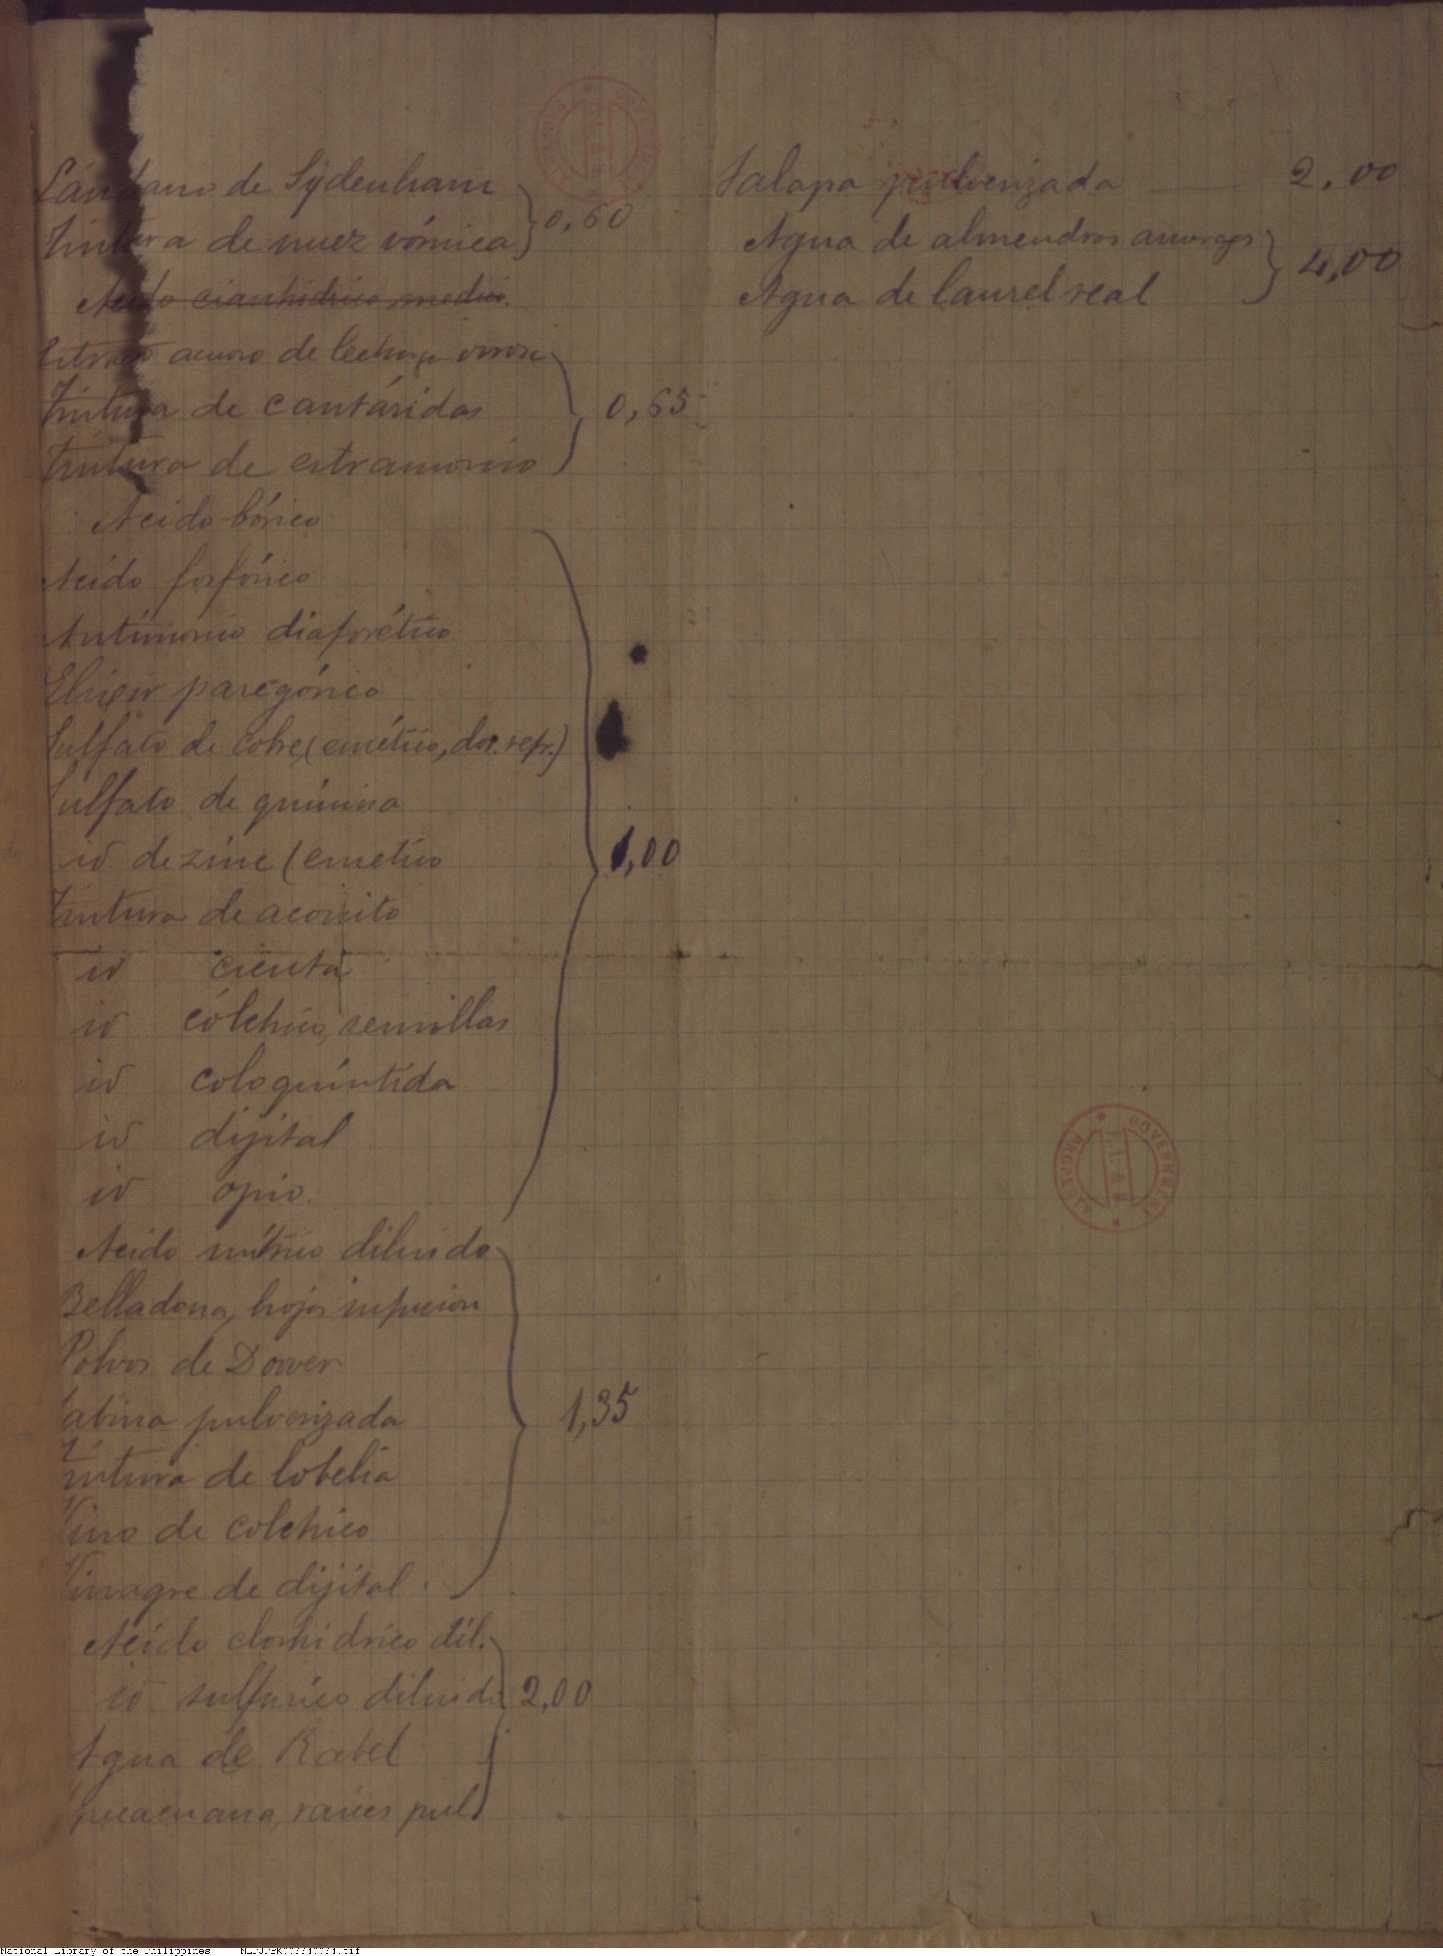 Láudano de Sydenham
Tintura de nuez vómica } 0,60
Acido cianhidrico medici.
Extracto acuoso de lechuga
Tintura de cantáridas } 0,65
Tintura de estramonio
Acido bórico
Acido fosfórico
Antimonio diaforético
Elixir paregórico
Sulfato de cobre (emético, dos. refr.)
Sulfato de quinina
id de zinc (emetico
1,00
Tintura de aconito
id cicuta
id cólchico, semillas
id coloquíntida
id dijital
id opio.
Acido nítrico diluido
Belladona, hojas infusion
Polvos de Dower
Sabina pulverizada } 1,35
Tintura de lobelia
Vino de colchico
Vinagre de dijital.
Acido clorhidrico dil.
id sulfurico diluido } 2,00
Agua de Rabel
Ipecacuana, raices pul
Jalapa pulverizada — 2,00
Agua de almendras amargas
Agua de laurel real } 4,00
National Library of the Philippines